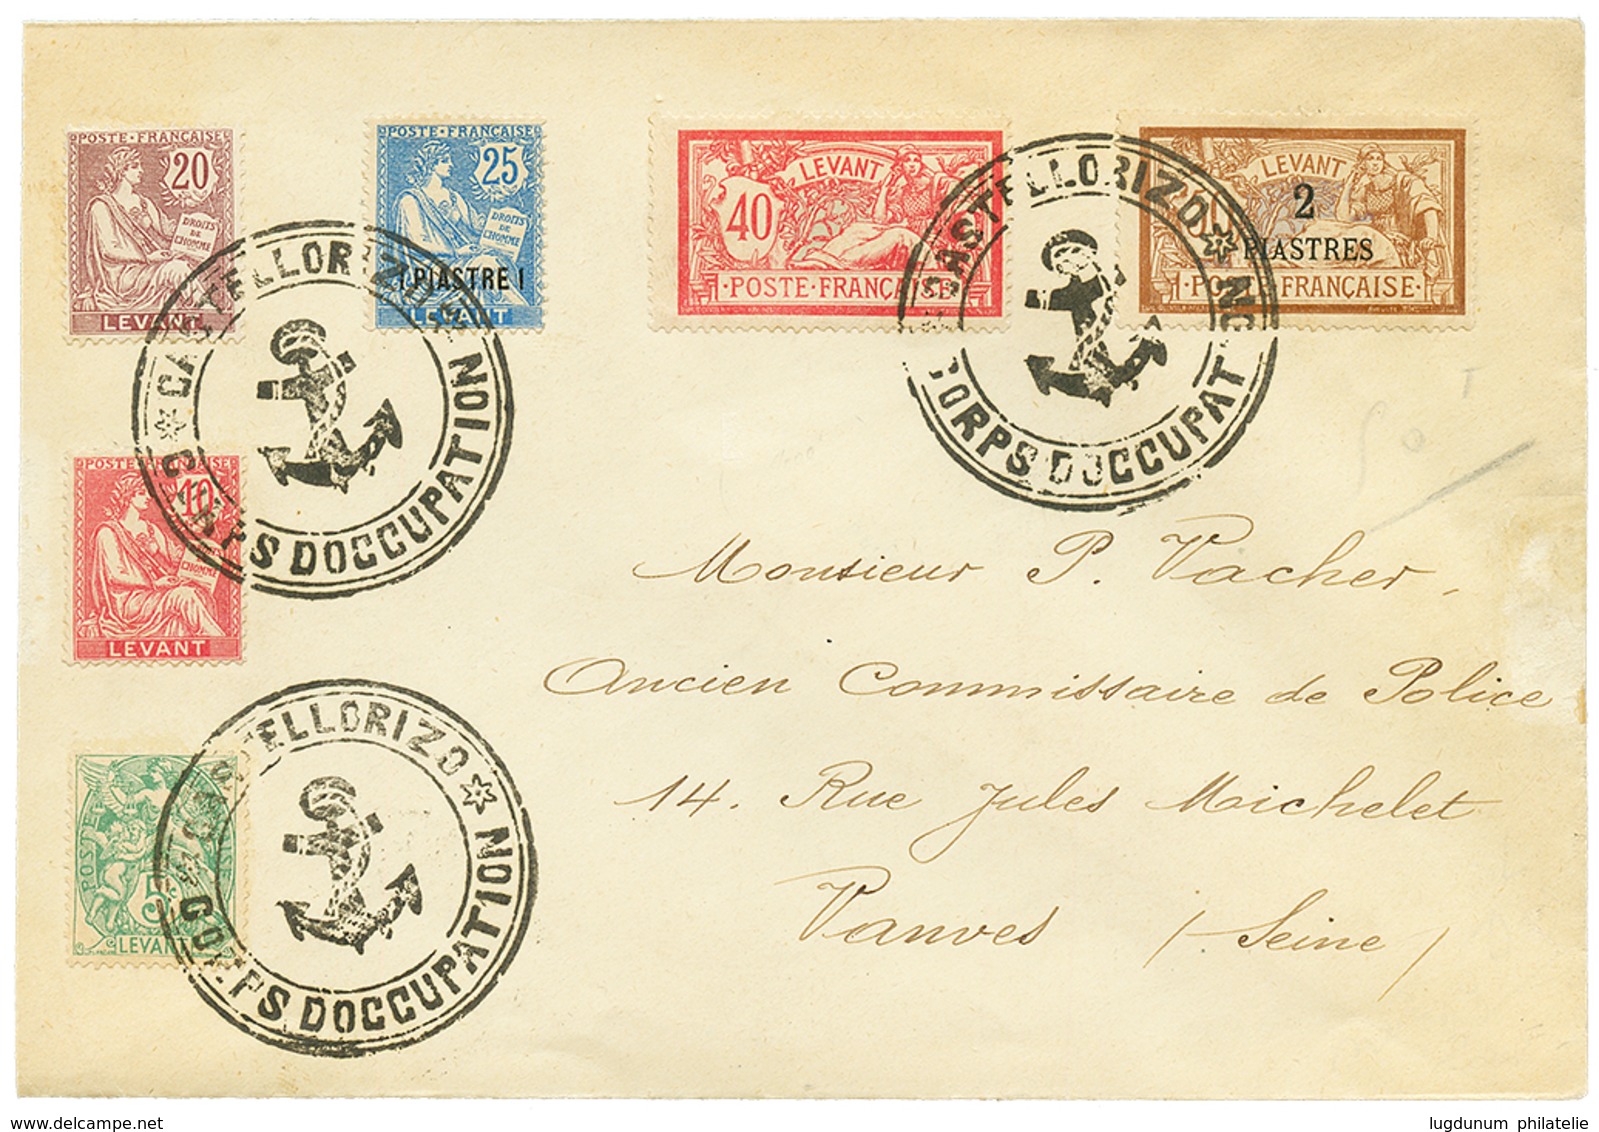 POSTE FRANÇAISE
20
DROITS DE L'HOMME
LEVANT
POSTE FRANÇAISE
25
DROITS DE L'HOMME
1 PIASTRE 1
LEVANT
LEVANT
40
POSTE FRANÇAISE
LEVANT
2
PIASTRES
POSTE FRANÇAISE
CASTELLORIZO
CORPS DOCCUPATION
CASTELLORIZO
CORPS DOCCUPATION
POSTE FRANÇAISE
10
L'HOMME
LEVANT
Monsieur P. Vacher,
Ancien Commissaire de Police
14. Rue Jules Michelet
Vanves (Seine)
CASTELLORIZO
CORPS DOCCUPATION
POSTE
5c
LEVANT
delcampe.net
lugdunum philatelie